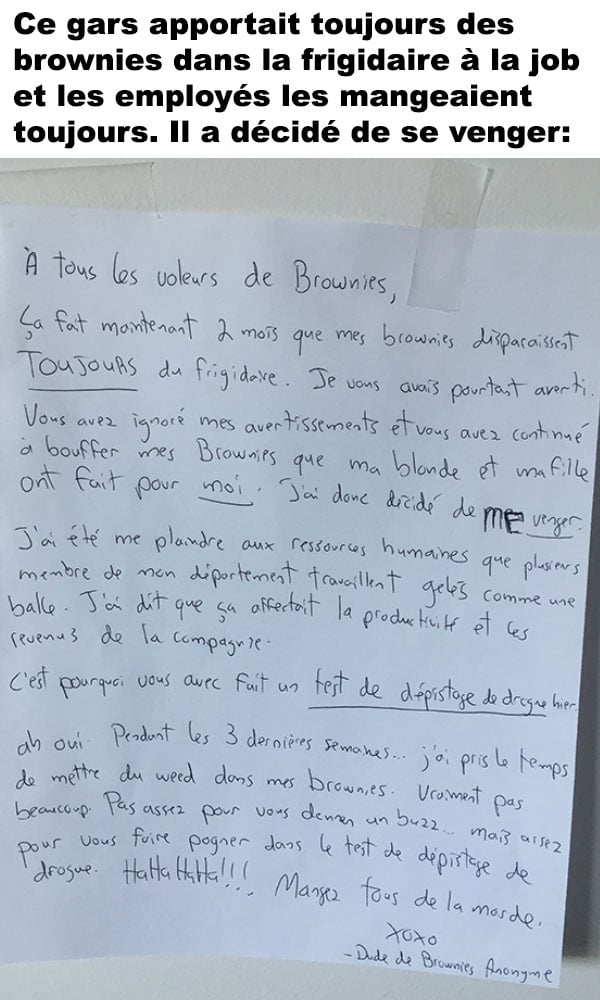 Ce gars apportait toujours des
brownies dans la frigidaire à la job
et les employés les mangeaient
toujours. Il a décidé de se venger:
À tous les voleurs de Brownies,
Ça fait maintenant 2 mois que mes brownies disparaissent
TOUJOURS du frigidaire. Je vous avais pourtant averti.
Vous avez ignoré mes avertissements et vous avez continué
à bouffer mes Brownies que ma blonde et ma fille
ont fait pour moi. J'ai donc décidé de me venger.
J'ai été me plaindre aux ressources humaines que plusieurs
membre de mon département travaillent gelés comme une
balle. J'ai dit que ça affectait la productivité et les
revenus de la compagnie.
C'est pourquoi vous avec fait un test de dépistage de drogue hier.
ah oui. Pendant les 3 dernières semaines... j'ai pris le temps
de mettre du weed dans mes brownies. Vraiment pas
beaucoup. Pas assez pour vous donner un buzz... mais assez
pour vous faire pogner dans le test de dépistage de
drogue. HaHaHaHa!!! Mangez tous de la marde.
XOXO
- Dude de Brownies Anonyme